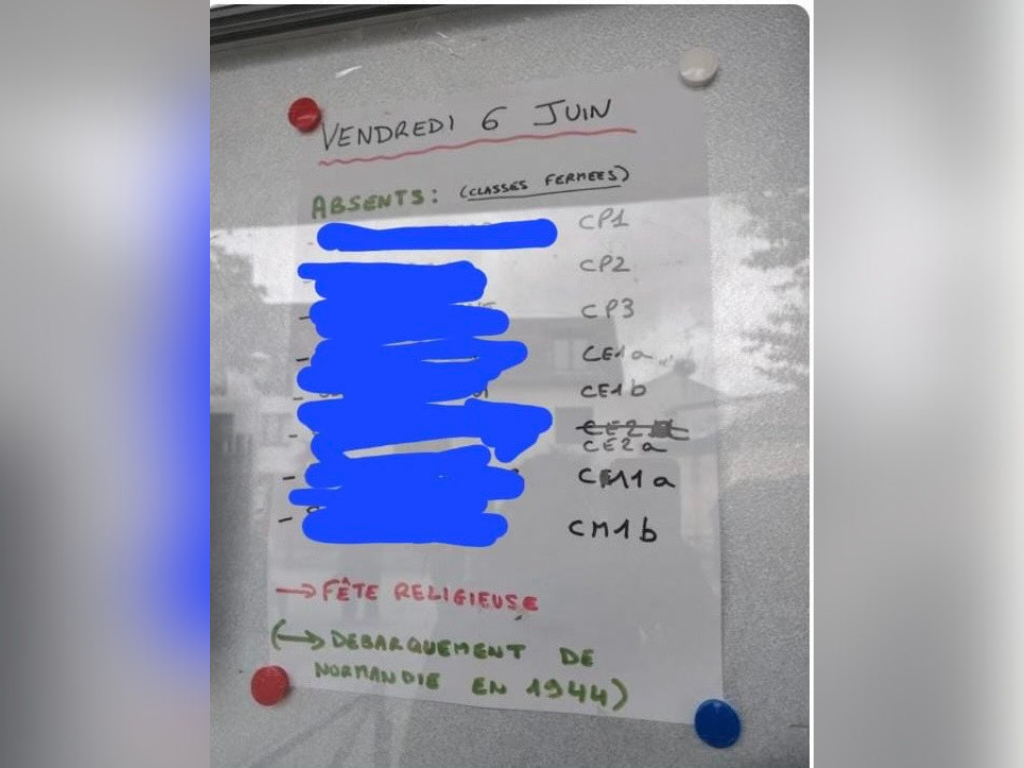 VENDREDI 6 JUIN
ABSENTS: (CLASSES FERMEES)
CP1
CP2
CP3
CE1a
CE1b
CE2a
CM1a
CM1b
→ FÊTE RELIGIEUSE
(→ DEBARQUEMENT DE
NORMANDIE EN 1944)